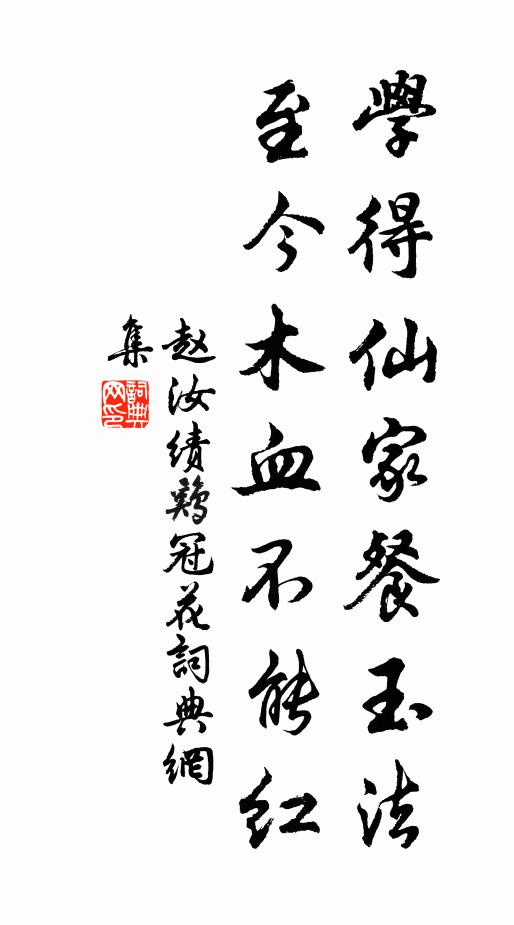 學得仙家餐玉法
至今木血不能红
赵汝绩鷄冠花詞典網
集
詞典
网印